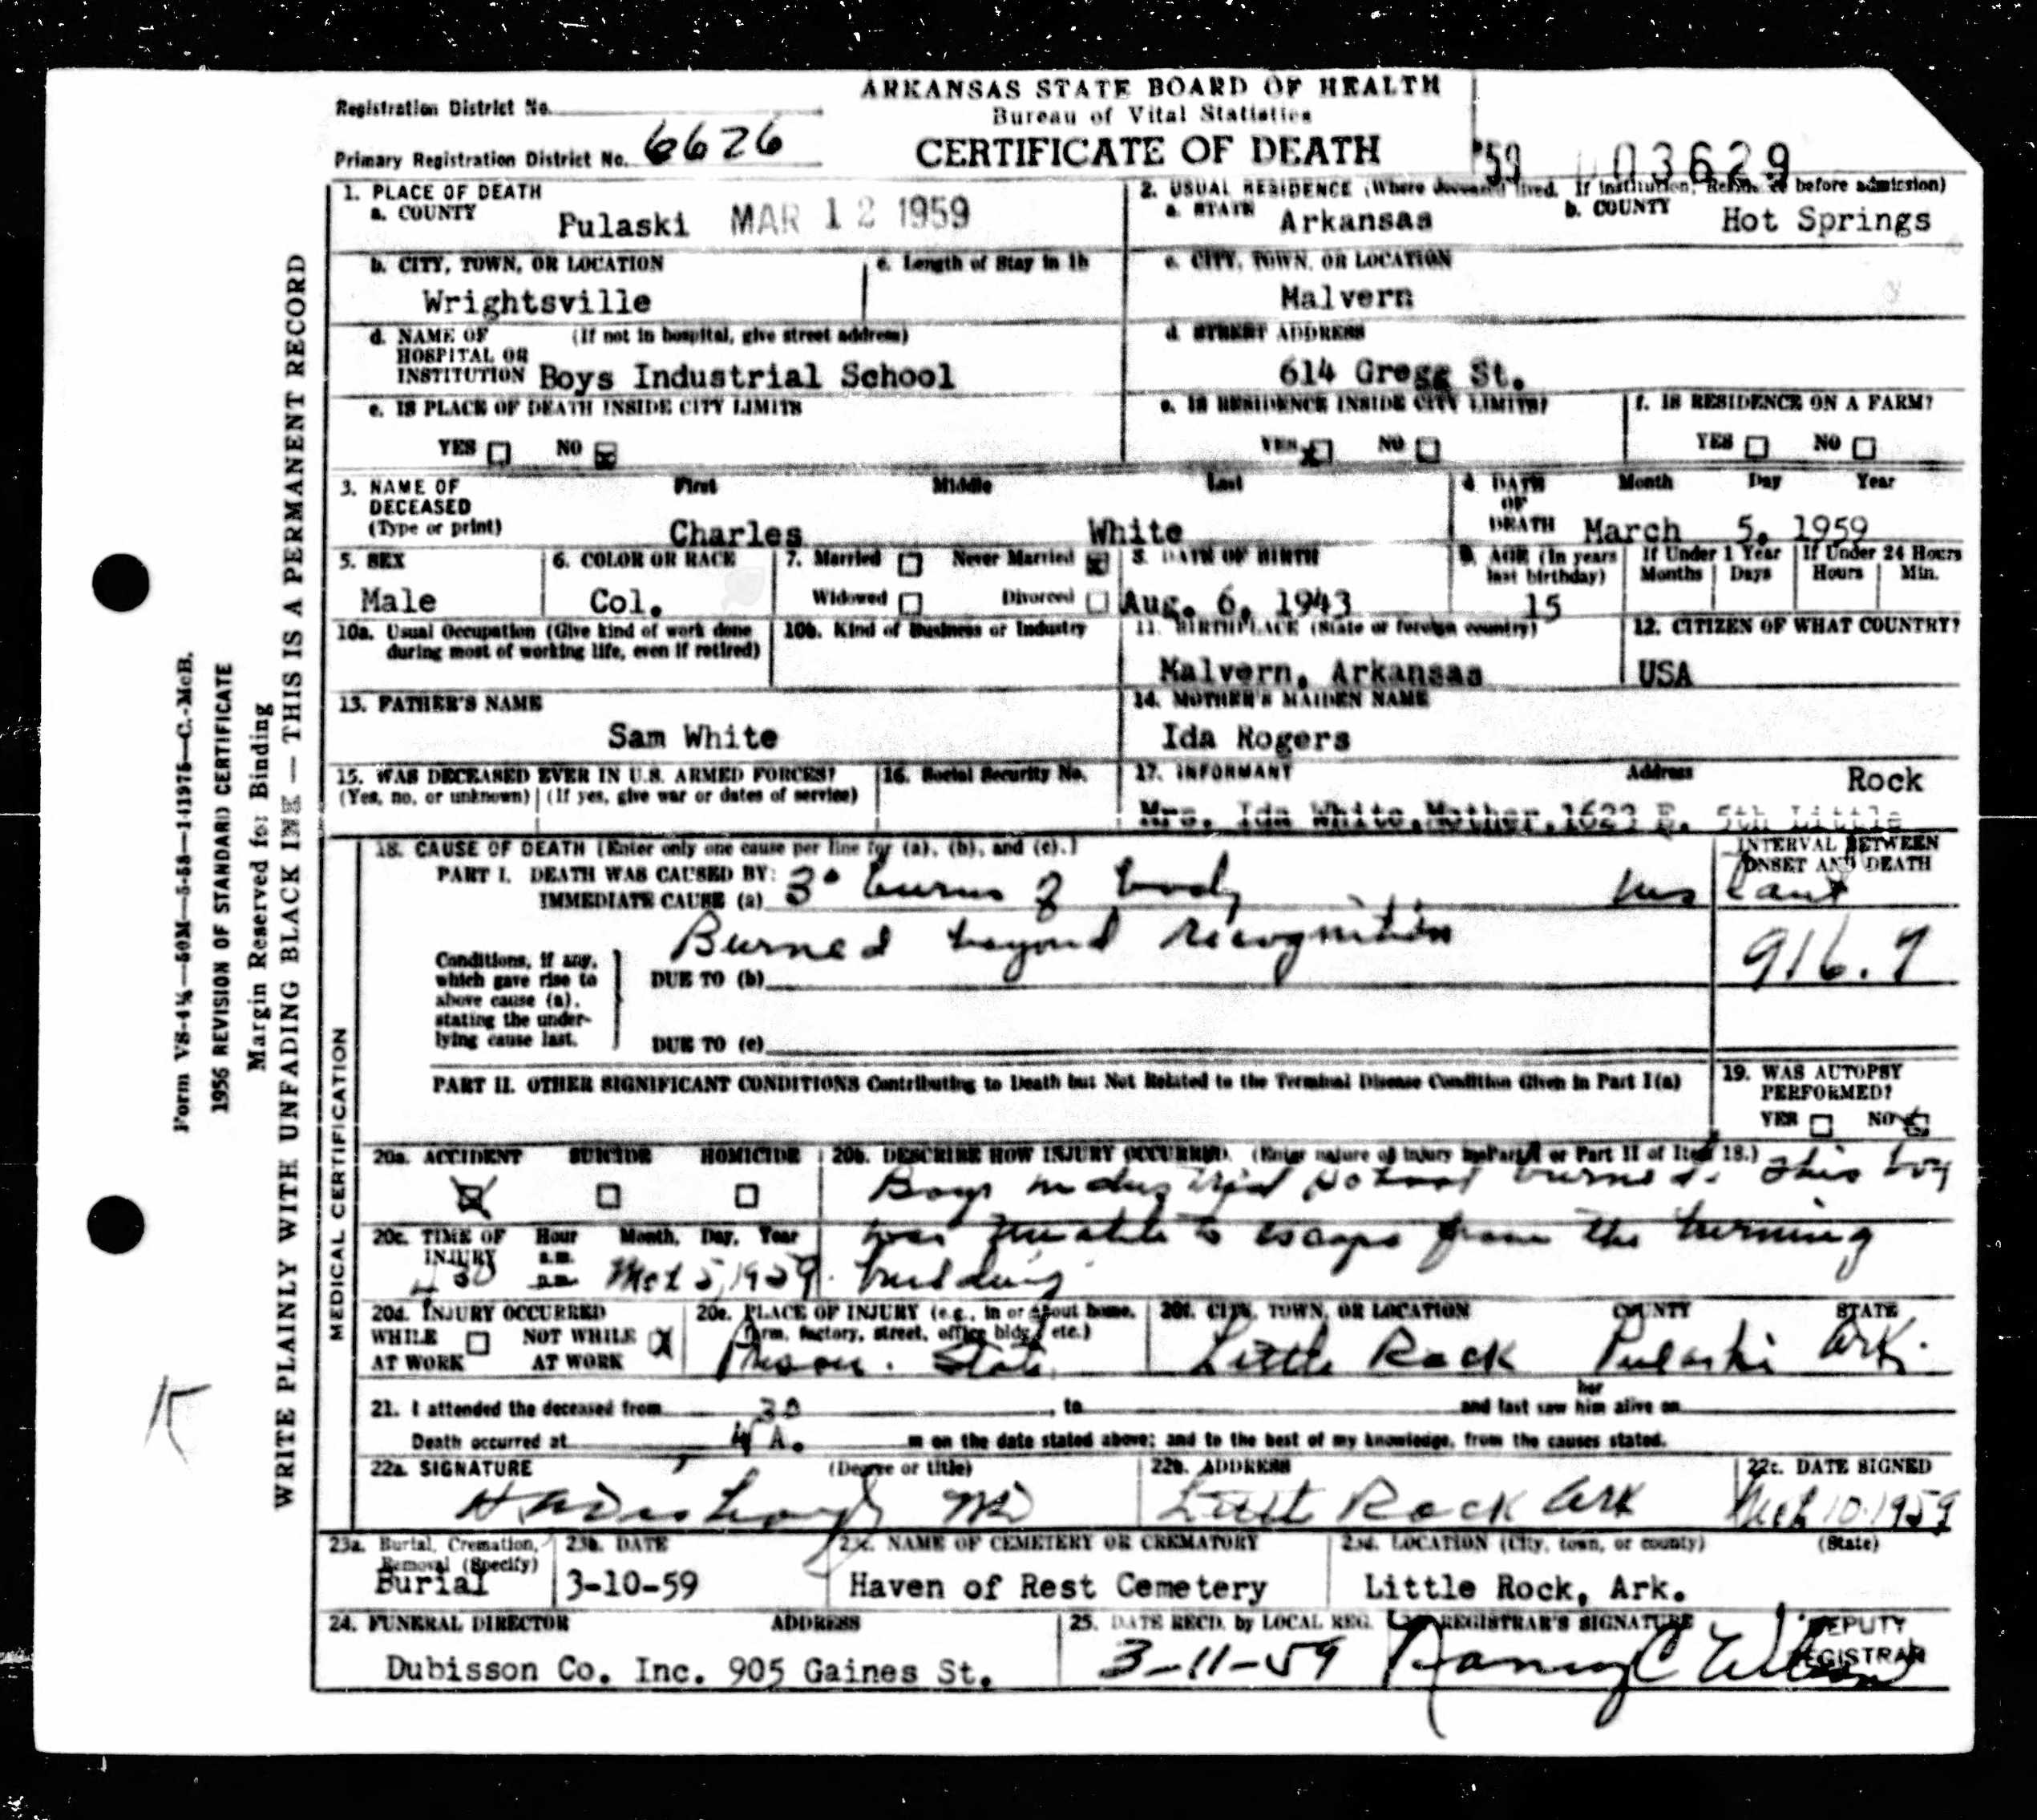 ARKANSAS STATE BOARD OF HEALTH
Bureau of Vital Statistics
CERTIFICATE OF DEATH
Registration District No.
Primary Registration District No. 6626
'59 003629
1. PLACE OF DEATH
a. COUNTY Pulaski MAR 12 1959
2. USUAL RESIDENCE (Where deceased lived. If institution, Residence before admission)
a. STATE Arkansas b. COUNTY Hot Springs
b. CITY, TOWN, OR LOCATION Wrightsville
c. Length of Stay in 1b
c. CITY, TOWN, OR LOCATION Malvern
d. NAME OF HOSPITAL OR INSTITUTION (If not in hospital, give street address) Boys Industrial School
d. STREET ADDRESS 614 Gregg St.
e. IS PLACE OF DEATH INSIDE CITY LIMITS
YES NO
e. IS RESIDENCE INSIDE CITY LIMITS?
YES NO
f. IS RESIDENCE ON A FARM?
YES NO
3. NAME OF DECEASED (Type or print)
First Middle Last
Charles White
4. DATE OF DEATH Month Day Year
March 5, 1959
5. SEX Male
6. COLOR OR RACE Col.
7. Married Never Married
Widowed Divorced
8. DATE OF BIRTH Aug. 6, 1943
9. AGE (In years last birthday) 15
If Under 1 Year Months Days
If Under 24 Hours Hours Min.
10a. Usual Occupation (Give kind of work done during most of working life, even if retired)
10b. Kind of Business or Industry
11. BIRTHPLACE (State or foreign country) Malvern, Arkansas
12. CITIZEN OF WHAT COUNTRY? USA
13. FATHER'S NAME Sam White
14. MOTHER'S MAIDEN NAME Ida Rogers
15. WAS DECEASED EVER IN U.S. ARMED FORCES?
(Yes, no, or unknown) (If yes, give war or dates of service)
16. Social Security No.
17. INFORMANT Address Rock
Mrs. Ida White, Mother, 1623 E. 5th Little
MEDICAL CERTIFICATION
18. CAUSE OF DEATH [Enter only one cause per line for (a), (b), and (c).]
INTERVAL BETWEEN ONSET AND DEATH
PART I. DEATH WAS CAUSED BY:
IMMEDIATE CAUSE (a) 3° burns of body instant
Burned beyond recognition 916.9
Conditions, if any, which gave rise to above cause (a), stating the underlying cause last.
DUE TO (b)
DUE TO (c)
PART II. OTHER SIGNIFICANT CONDITIONS Contributing to Death but Not Related to the Terminal Disease Condition Given in Part I(a)
19. WAS AUTOPSY PERFORMED?
YES NO
20a. ACCIDENT SUICIDE HOMICIDE
20b. DESCRIBE HOW INJURY OCCURRED. (Enter nature of injury in Part I or Part II of Item 18.)
Boys Industrial School burned. This boy
was unable to escape from the burning
building
20c. TIME OF INJURY Hour a.m. p.m. Month, Day, Year
4 30 Mch 5, 1959
20d. INJURY OCCURRED
WHILE AT WORK NOT WHILE AT WORK X
20e. PLACE OF INJURY (e.g., in or about home, farm, factory, street, office bldg., etc.)
Prison. State
20f. CITY, TOWN, OR LOCATION COUNTY STATE
Little Rock Pulaski Ark.
21. I attended the deceased from , to and last saw her him alive on
Death occurred at 4 30 A. m on the date stated above; and to the best of my knowledge, from the causes stated.
22a. SIGNATURE (Degree or title)
MD
22b. ADDRESS Little Rock Ark
22c. DATE SIGNED Mch 10 1959
23a. Burial, Cremation, Removal (Specify) Burial
23b. DATE 3-10-59
23c. NAME OF CEMETERY OR CREMATORY Haven of Rest Cemetery
23d. LOCATION (City, town, or county) (State) Little Rock, Ark.
24. FUNERAL DIRECTOR ADDRESS
Dubisson Co. Inc. 905 Gaines St.
25. DATE RECD. by LOCAL REG. 3-11-59
REGISTRAR'S SIGNATURE
DEPUTY REGISTRAR
Form VS-4¼—50M—5-58—141975—C.-McB.
1956 REVISION OF STANDARD CERTIFICATE
Margin Reserved for Binding
WRITE PLAINLY WITH UNFADING BLACK INK — THIS IS A PERMANENT RECORD